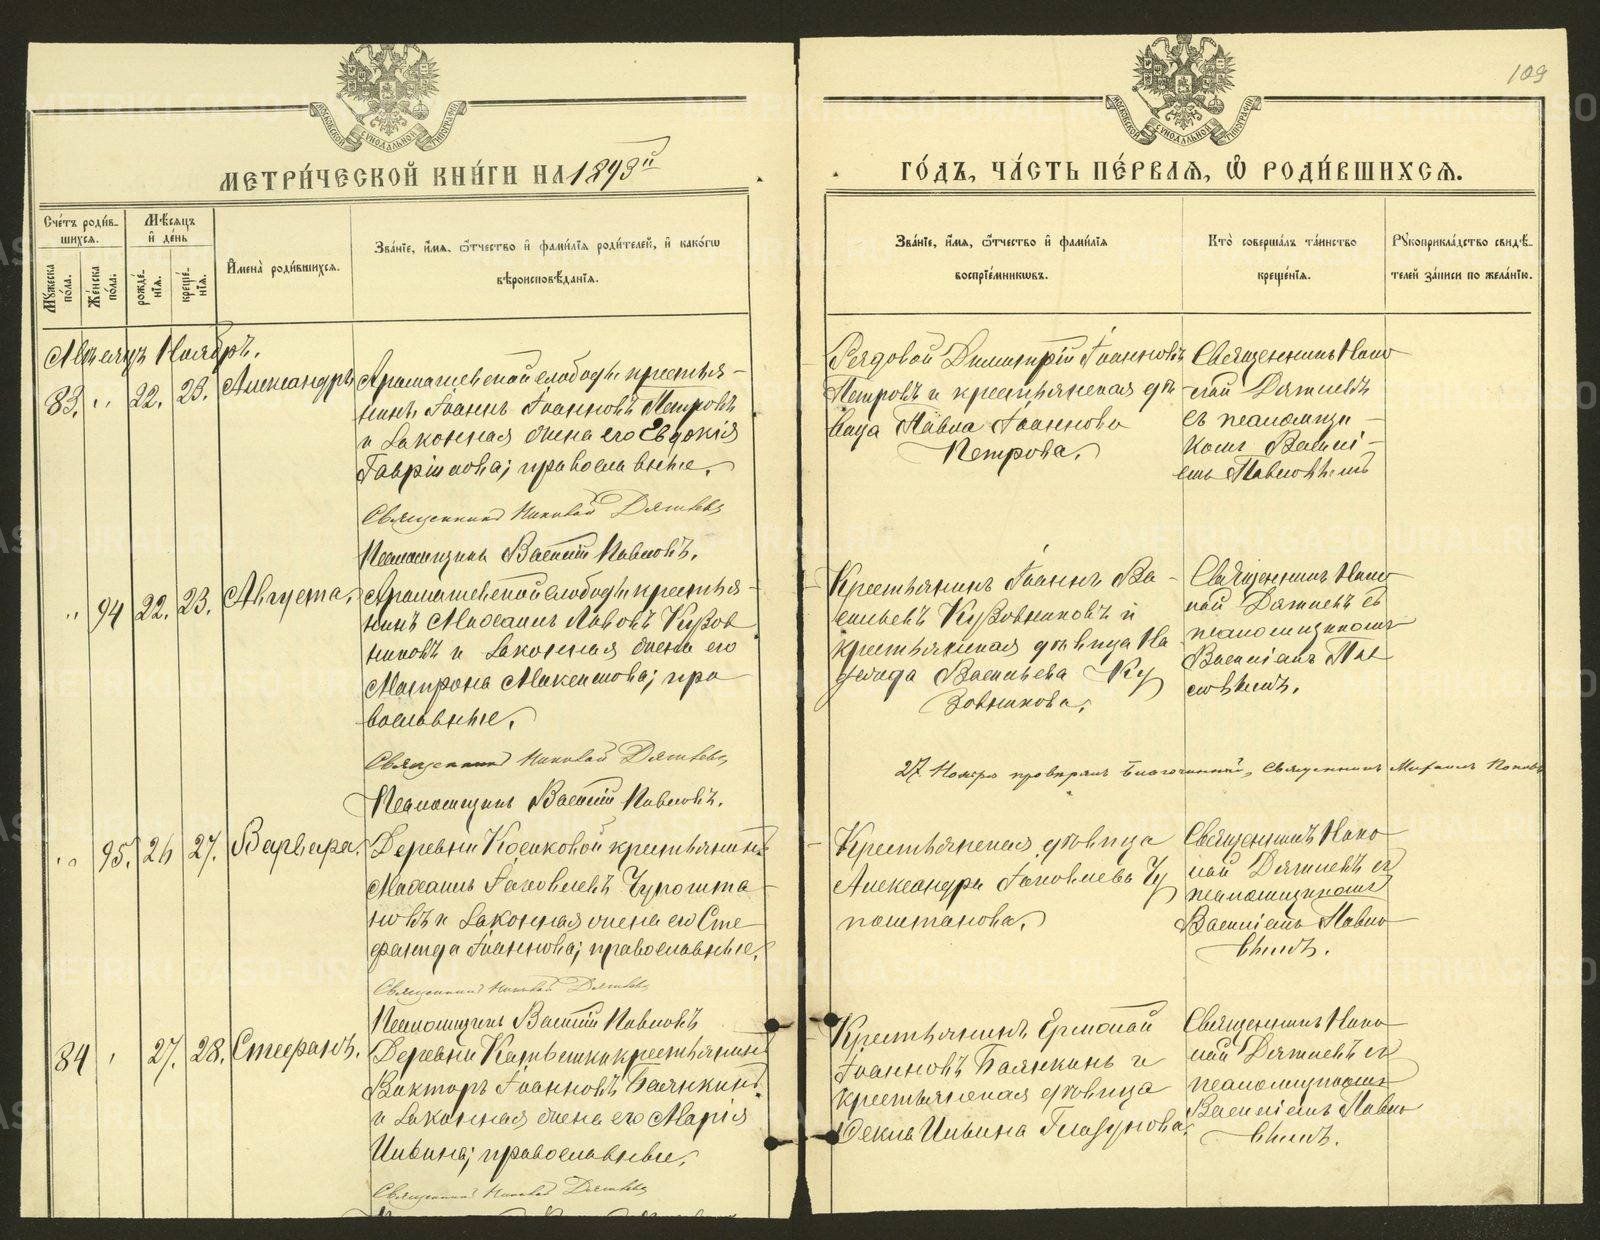 109
МЕТРИ́ЧЕСКОЙ КНИ́ГИ НА 1893й
ГО́ДЪ, ЧА́СТЬ ПЕ́РВАЯ, Ѽ РОДИ́ВШИХСЯ.
Сче́тъ роди́в-
шихся.
Мѣсяцъ
и҆ де́нь
Мꙋ́жеска
по́ла.
Же́нска
по́ла.
рожде́-
нїя.
креще́-
нїя.
И҆мена̀ роди́вшихся.
Зва́нїе, и҆́мя, ѻ҆́тчество и҆ фами́лїя роди́телей, и҆ како́гѡ
вѣроисповѣ́данїя.
Зва́нїе, и҆́мя, ѻ҆́тчество и҆ фами́лїя
воспрїе́мниковъ.
Кто̀ соверша́лъ та́инство
креще́нїя.
Рꙋкоприкла́дство свидѣ́-
телей за́писи по жела́нїю.
Мѣсяцъ Ноябрь.
83. " 22. 23. Александръ
Арамашевской слободы крестья-
нинъ Іоаннъ Іоанновъ Петровъ
и законная жена его Евдокія
Гавріилова; православные.
Священникъ Николай Дягилевъ
Псаломщикъ Василій Павловъ.
Рядовой Димитрій Іоанновъ
Петровъ и крестьянская дѣ-
вица Павла Іоаннова
Петрова.
Священникъ Нико
лай Дягилевъ
съ псаломщи-
комъ Василі-
емъ Павловымъ
" 94 22. 23. Августа.
Арамашевской слободы крестья-
нинъ Михаилъ Львовъ Кузов
никовъ и законная жена его
Матрона Максимова; пра
вославные.
Священникъ Николай Дягилевъ
Псаломщикъ Василій Павловъ.
Крестьянинъ Іоаннъ Ва-
сильевъ Кузовниковъ и
крестьянская дѣвица На
дежда Васильева Ку
зовникова.
Священникъ Нико
лай Дягилевъ съ
псаломщикомъ
Василіемъ Пав
ловымъ.
27 Ноября провѣрялъ Благочинный, Священникъ Михаилъ Поповъ
" 95. 26 27. Варвара.
Деревни Косиковой крестьянинъ
Михаилъ Іаковлевъ Чупошта-
новъ и законная жена его Сте
фанида Іоаннова; православные.
Священникъ Николай Дягилевъ
Псаломщикъ Василій Павловъ
Крестьянская дѣвица
Александра Іаковлева Чу
поштанова.
Священникъ Нико
лай Дягилевъ съ
псаломщикомъ
Василіемъ Павло
вымъ.
84 " 27. 28. Стефанъ.
Деревни Катышки крестьянинъ
Викторъ Іоанновъ Баянкинъ
и законная жена его Марія
Ильина; православные.
Священникъ Николай Дягилевъ
Крестьянинъ Ермолай
Іоанновъ Баянкинъ и
крестьянская дѣвица
Ѳекла Ильина Глазунова.
Священникъ Нико
лай Дягилевъ съ
псаломщикомъ
Василіемъ Павло
вымъ.